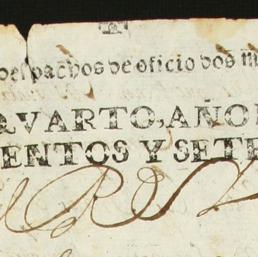 despachos de oficio dos m
QVARTO, AÑO
ENTOS Y SETE